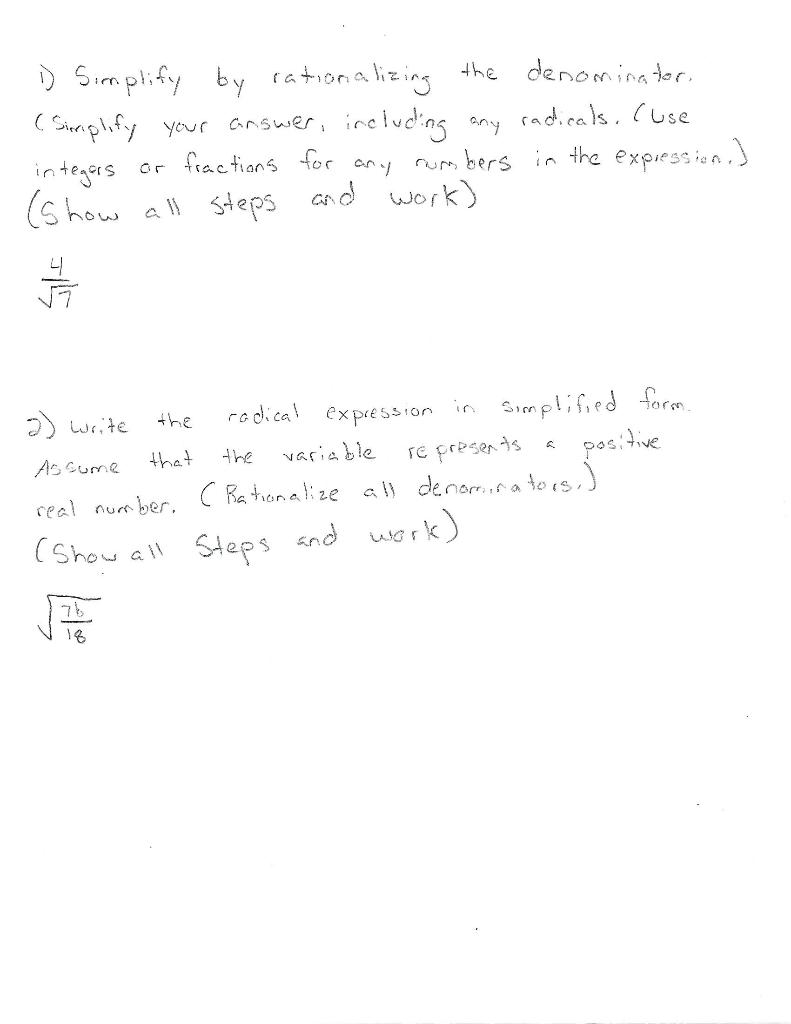 1) Simplify by rationalizing the denominator.
(Simplify your answer, including any radicals. (Use
integers or fractions for any numbers in the expression.)
(Show all steps and work)
4
√7
2) Write the radical expression in simplified form.
Assume that the variable represents a positive
real number. (Rationalize all denominators.)
(Show all Steps and work)
√7b
18